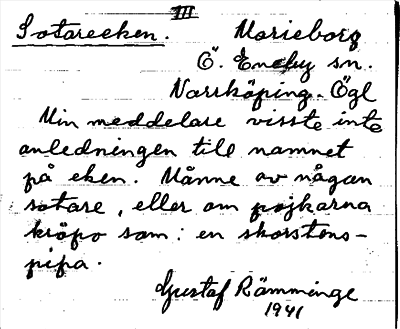 III
Sotareeken. Marieborg
Ö. Eneby sn.
Norrköping. Ögl
Min meddelare visste inte
anledningen till namnet
på eken. Månne av någon
sotare, eller om pojkarna
kröpo som: en skorstens-
pipa.
Gustaf Rämminge
1941